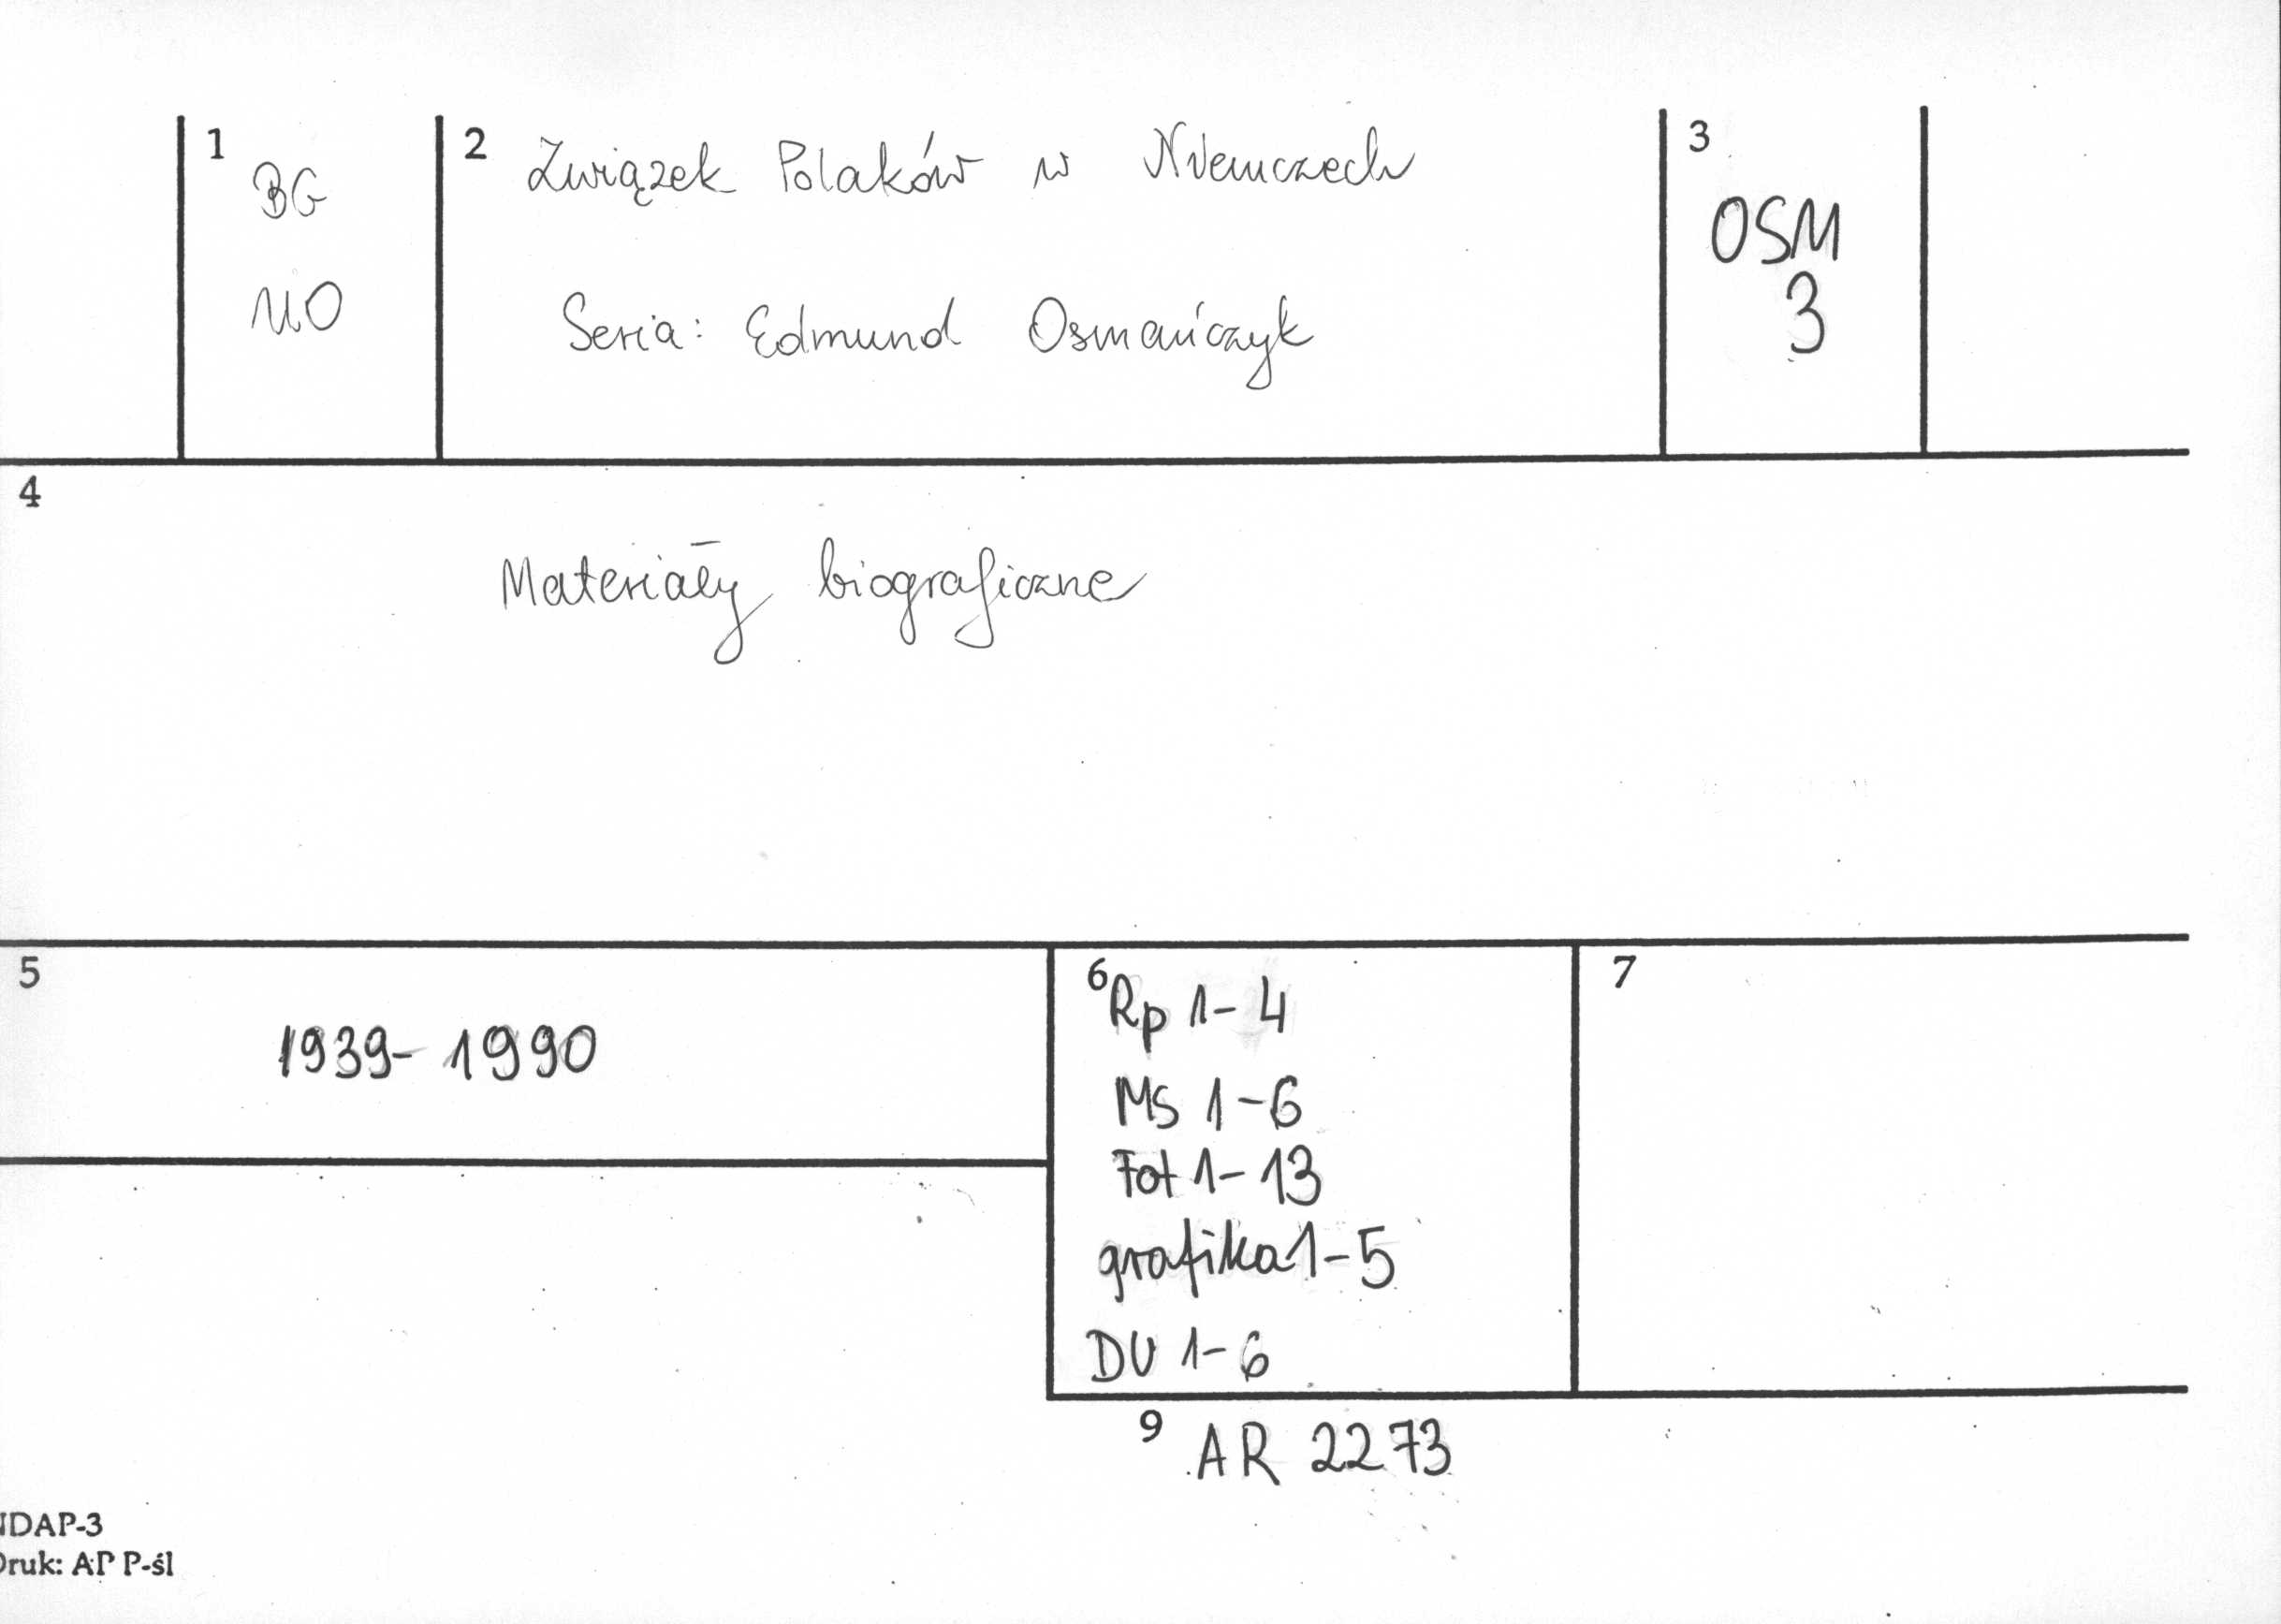 1
BG
MO
2 Związek Polaków w Niemczech
Seria: Edmund Osmańczyk
3
OSM
3
4
Materiały biograficzne
5
1939-1990
6 Rp 1-4
Ms 1-6
Fot 1-13
grafika 1-5
DU 1-6
7
9 AR 2273
NDAP-3
Druk: AP P-śl